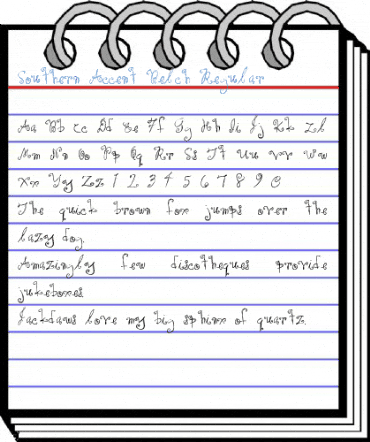 Southern Accent Belch Regular
Aa Bb Cc Dd Ee Ff Gg Hh Ii Jj Kk Ll
Mm Nn Oo Pp Qq Rr Ss Tt Uu Vv Ww
Xx Yy Zz 1 2 3 4 5 6 7 8 9 0
The quick brown fox jumps over the
lazy dog
Amazingly few discotheques provide
jukeboxes
Jackdaws love my big sphinx of quartz